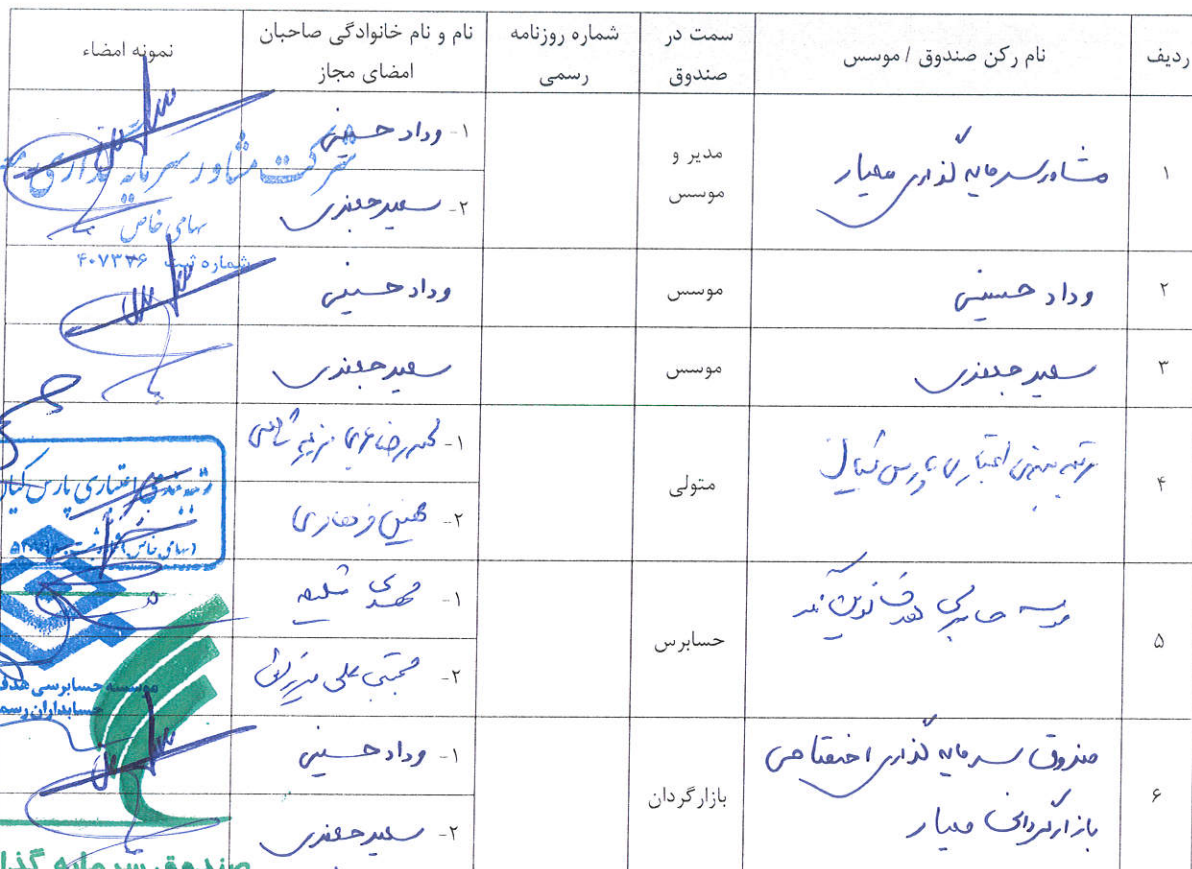 ردیف
نام رکن صندوق / موسس
سمت در صندوق
شماره روزنامه رسمی
نام و نام خانوادگی صاحبان امضای مجاز
نمونه امضاء
۱
مشاور سرمایه گذاری معیار
مدیر و موسس
۱- وداد حسینی
۲- سعید جعفری
شرکت مشاور سرمایه گذاری
سهامی خاص
شماره ثبت ۴۰۷۳۳۶
۲
وداد حسینی
موسس
وداد حسینی
۳
سعید جعفری
موسس
سعید جعفری
۴
رتبه بندی اعتباری پارس کیان
متولی
۱- محمدرضا
۲-
رتبه بندی اعتباری پارس کیان
(سهامی خاص)
۵
موسسه حسابرسی هدف نوین نگر
حسابرس
۱- مهدی
۲- مجتبی علی میرزائی
موسسه حسابرسی هدف
حسابداران رسم
۶
صندوق سرمایه گذاری اختصاصی
بازارگردانی معیار
بازارگردان
۱- وداد حسینی
۲- سعید جعفری
صندوق سرمایه گذا